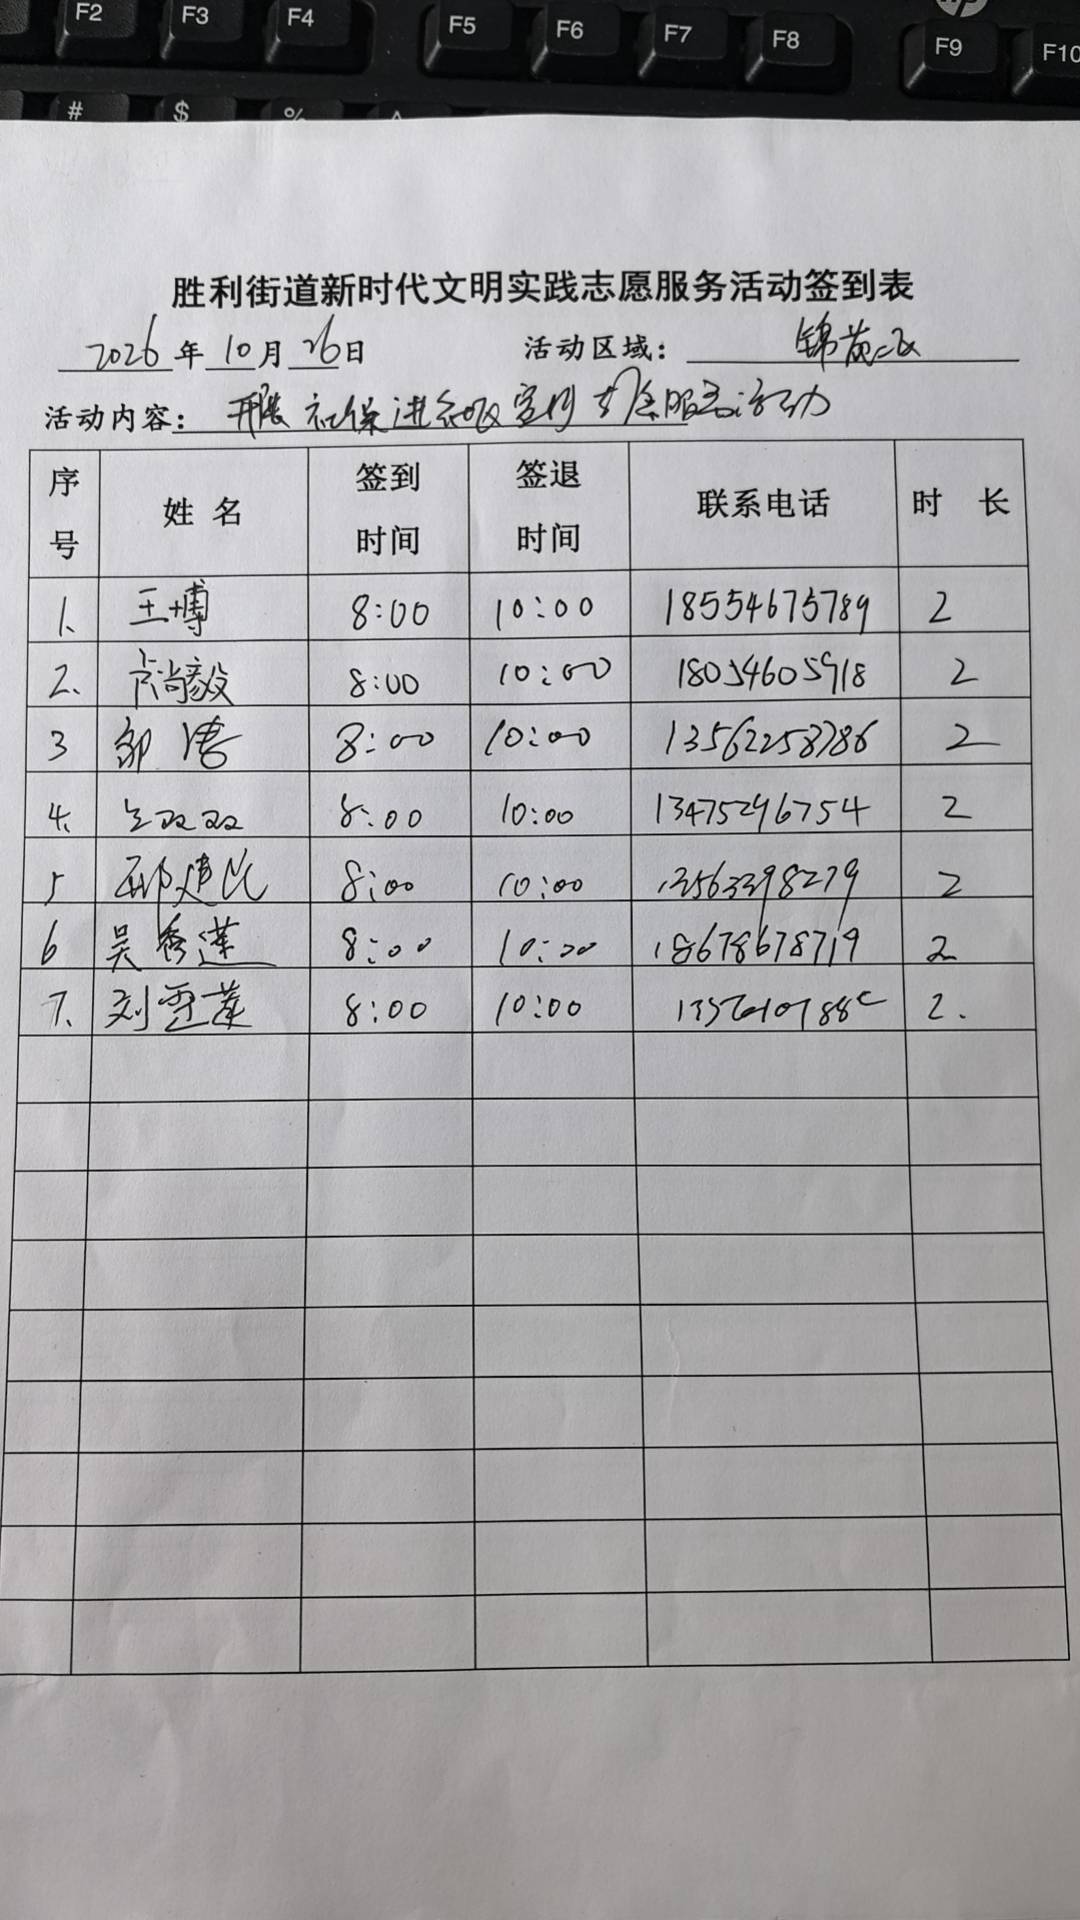 F2 F3 F4 F5 F6 F7 F8 F9 F10
# $ % ^
胜利街道新时代文明实践志愿服务活动签到表
2026年10月26日 活动区域：锦苑二区
活动内容：开展社保进社区宣传志愿服务活动
序号 姓名 签到时间 签退时间 联系电话 时长
1、 王博 8:00 10:00 18554675789 2
2、 卢尚毅 8:00 10:00 18054605918 2
3 邹涛 8:00 10:00 13562258786 2
4、 双双 8:00 10:00 13475296754 2
5 邢建民 8:00 10:00 13563398279 2
6 吴秀莲 8:00 10:00 18678678719 2
7、 刘雪莲 8:00 10:00 2.